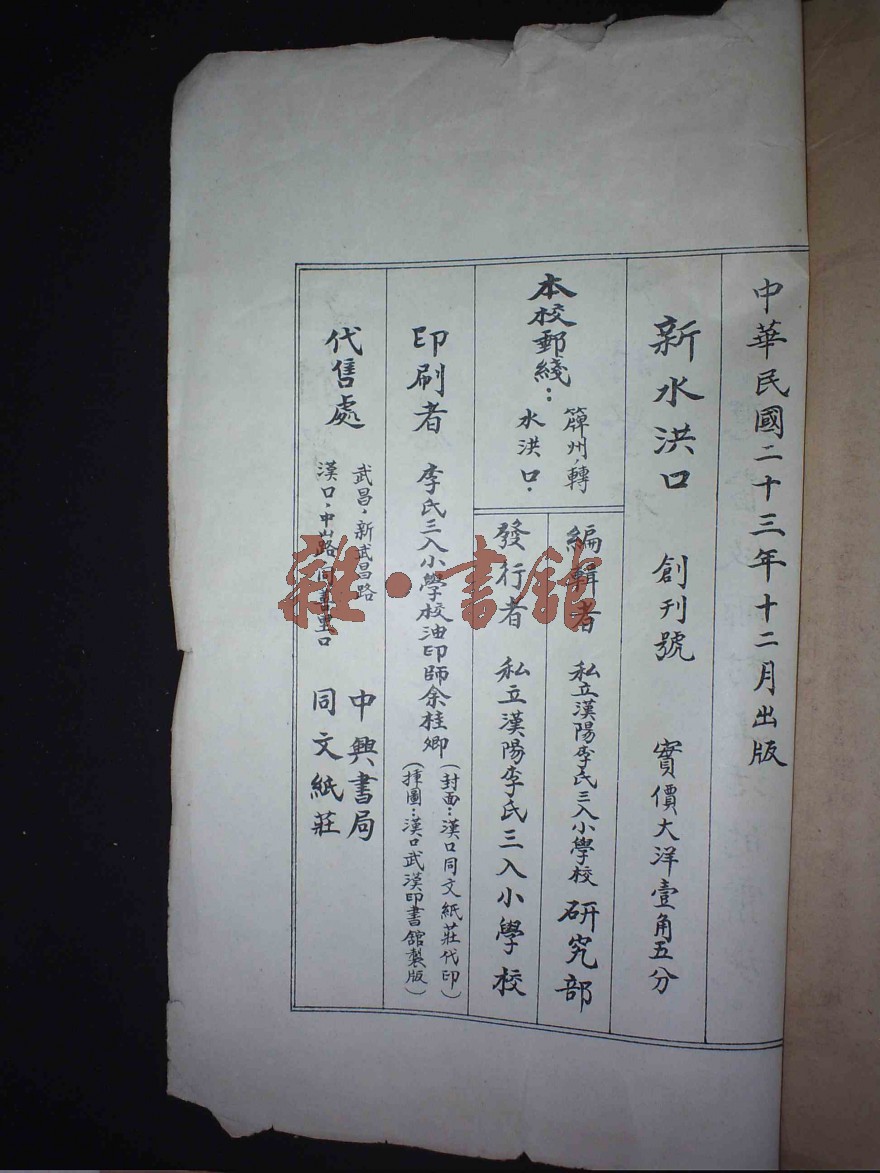 中華民國二十三年十二月出版
新水洪口 創刊號 實價大洋壹角五分
本校郵綫：
簰州轉
水洪口．
編輯者 私立漢陽李氏三入小學校 研究部
發行者 私立漢陽李氏三入小學校
印刷者 李氏三入小學校油印師余桂卿
（封面：漢口同文紙莊代印）
（插圖：漢口武漢印書館製版）
代售處
武昌．新武昌路 中興書局
漢口．中山路同善里口 同文紙莊
雜·書館